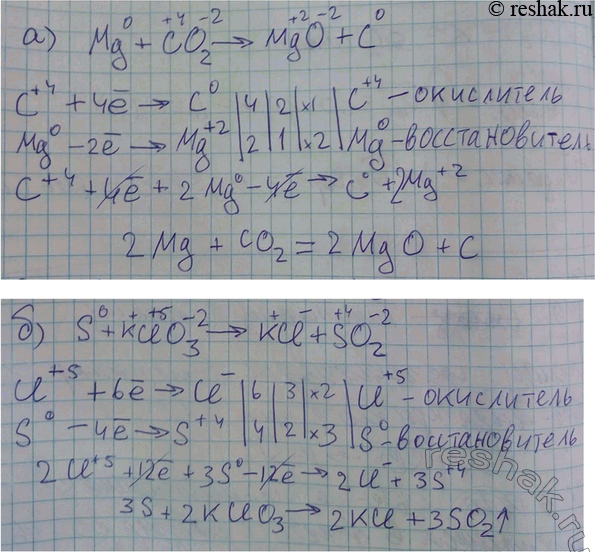 © reshak.ru
а) Mg⁰ + C⁺⁴O₂⁻² → Mg⁺²O⁻² + C⁰
C⁺⁴ + 4ē → C⁰ | 4 | 2 | ×1 | C⁺⁴ – окислитель
Mg⁰ – 2ē → Mg⁺² | 2 | 1 | ×2 | Mg⁰ – восстановитель
C⁺⁴ + 4ē + 2Mg⁰ – 4ē → C⁰ + 2Mg⁺²
2Mg + CO₂ = 2MgO + C
б) S⁰ + K⁺Cl⁺⁵O₃⁻² → K⁺Cl⁻ + S⁺⁴O₂⁻²
Cl⁺⁵ + 6ē → Cl⁻ | 6 | 3 | ×2 | Cl⁺⁵ – окислитель
S⁰ – 4ē → S⁺⁴ | 4 | 2 | ×3 | S⁰ – восстановитель
2Cl⁺⁵ + 12ē + 3S⁰ – 12ē → 2Cl⁻ + 3S⁺⁴
3S + 2KClO₃ → 2KCl + 3SO₂↑
reshak.ru